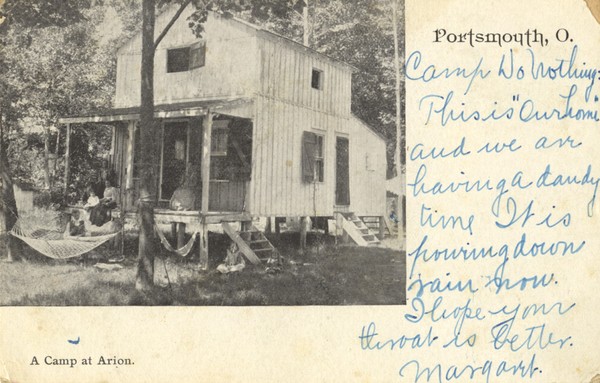 Portsmouth, O.
Camp Do Nothing:
This is "Our home"
and we are
having a dandy
time It is
pouring down
rain now.
I hope your
throat is better.
Margaret.
A Camp at Arion.